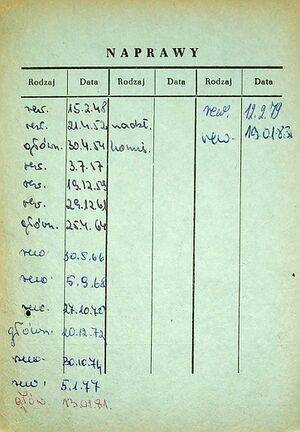 NAPRAWY
Rodzaj Data Rodzaj Data Rodzaj Data
rew. 15.2.48 rew. 12.2.79
rew. 21.4.52 nadzł. rew. 19.01.83
główn. 30.4.54 komis.
rew. 3.7.57
rew. 19.12.59
rew. 29.12.61
główn. 25.4.64
rew. 30.5.66
rew. 5.9.68
rew. 27.10.70
główn. 20.12.72
rew. 30.10.74
rew. 5.1.77
głów. 13.01.81.